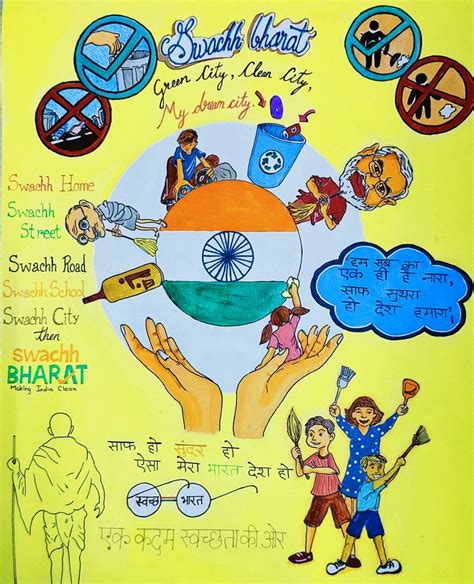 Swachh bharat
Green City, Clean City,
My dream city.
Swachh Home
Swachh
Street
Swachh Road
Swachh School
Swachh City
then
swachh
BHARAT
Making India Clean
हम सब का
एक ही है नारा,
साफ सुथरा
हो देश हमारा!
साफ हो सुंदर हो
ऐसा मेरा भारत देश हो
स्वच्छ भारत
एक कदम स्वच्छता की ओर